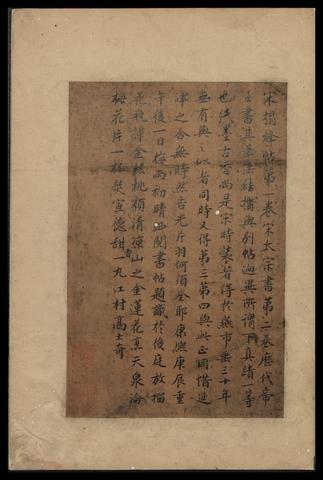 宋搨絳帖第一卷宋太宗書第二卷歷代帝
王書其筆法結搆與別帖迥異所謂下真蹟一等
也紙墨古香尚是宋時裝者得於燕市垂三十年
無有與之似者同時又得第三第四與此正同惜延
津之合無時然吉光片羽何須全耶康熙庚辰重
午後一日梅雨初晴西閣書帖題識於後庭放榴
花瓶歸金絲桃顏清涼山之金蓮花烹天泉瀹
梅花片一杯焚宣德甜香一丸江村高士奇